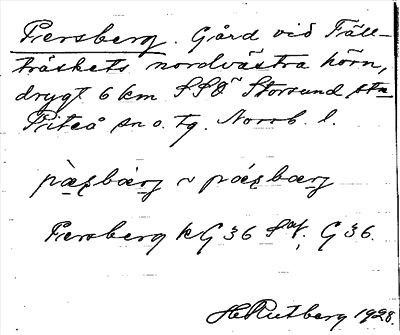 Persberg. Gård vid Fäll-
träskets nordvästra hörn,
drygt 6 km SSO Storsund stn
Piteå sn o. tg. Norrb. l.
pæ̀ʂbærj ~ pǽʂbærj
Persberg k G 36 Sat. G 36.
H. Rutberg 1928.